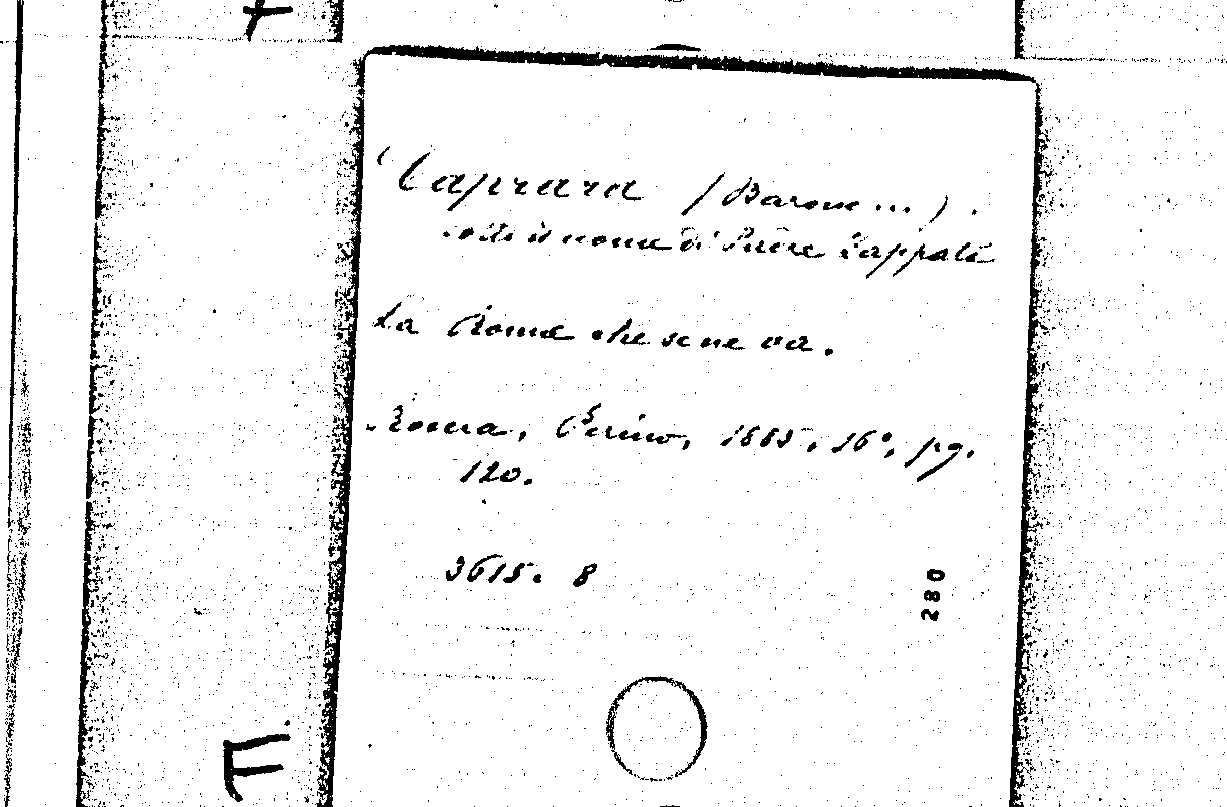 Caprara (Barone ...).
sotto il nome di Puère Zappate
La Roma che se ne va.
Roma, Perino, 1885, 16°, pg.
120.
3615. 8
280
F